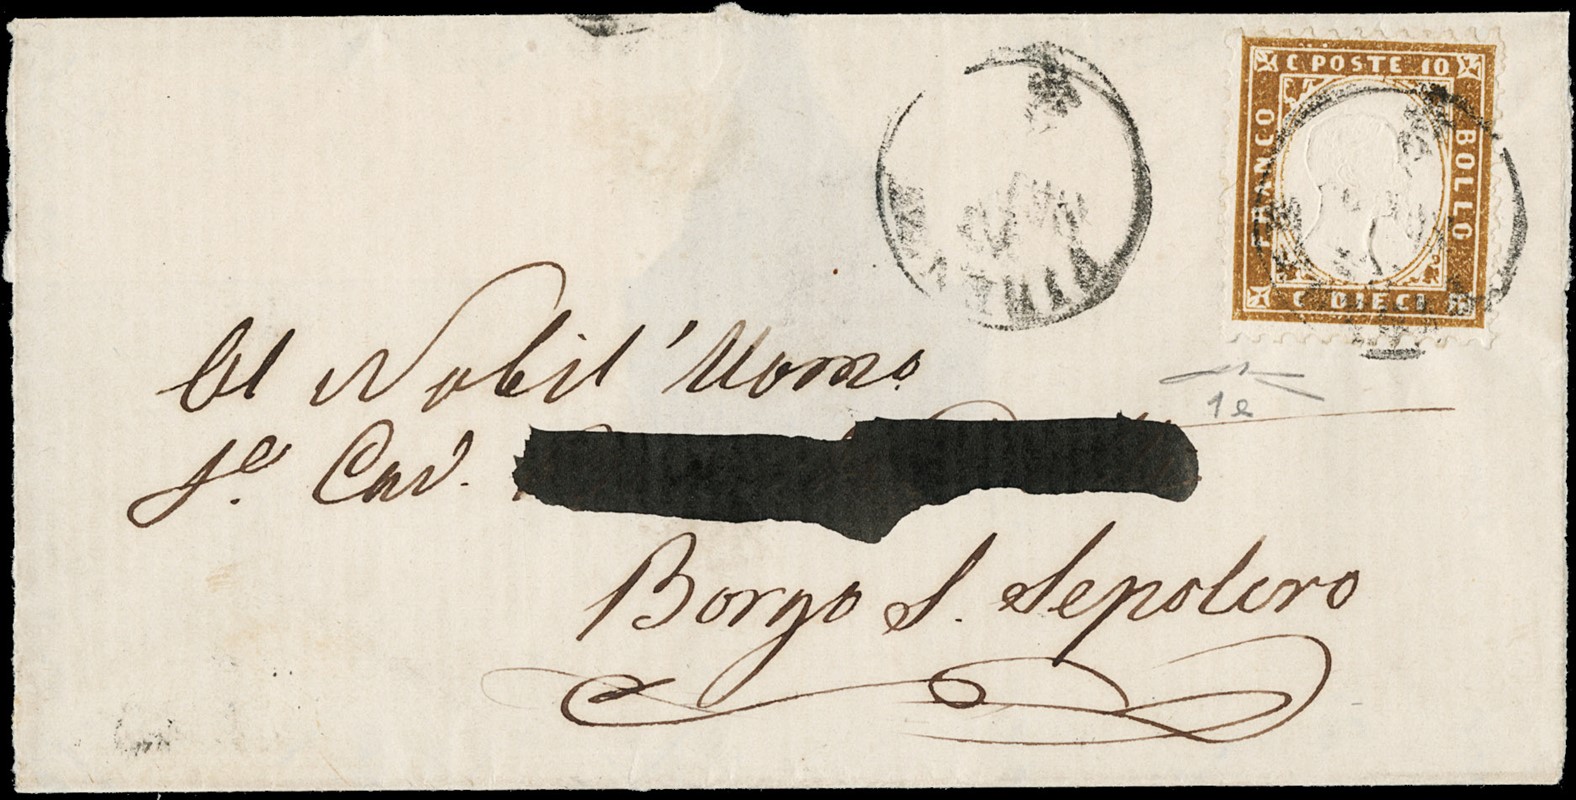 C POSTE 10
FRANCO
BOLLO
C DIECI 10
Al Nobil' Uomo
Sr. Cav.
1e
Borgo S. Sepolcro